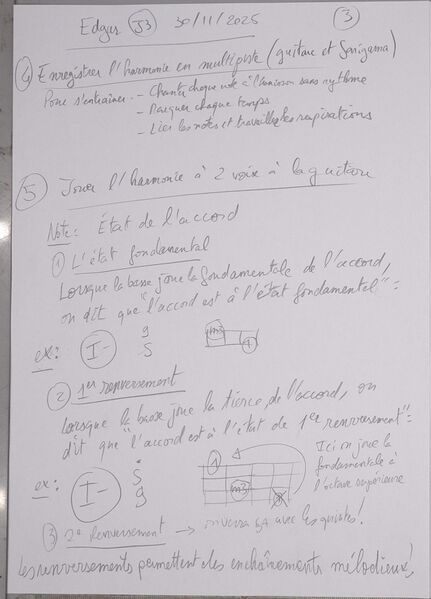 Edgar J3 30/11/2025 3
4 Enregistrer l'harmonie en multipiste (guitare et Sarigama)
Pour s'entraîner - Chanter chaque note à l'unisson sans rythme
- Marquer chaque temps
- Lier les notes et travailler les respirations
5 Jouer l'harmonie à 2 voix à la guitare
Note: État de l'accord
1 L'état fondamental
Lorsque la basse joue la fondamentale de l'accord,
on dit que "l'accord est à l'état fondamental" =
ex: I- g
S
m3
1
2 1er renversement
Lorsque la basse joue la tierce de l'accord, on
dit que "l'accord est à l'état de 1er renversement" =
ex: I- S
g
1
m3
Ici on joue la
fondamentale à
l'octave supérieure
3 2e renversement → on verra ça avec les quintes!
Les renversements permettent des enchaînements mélodieux!